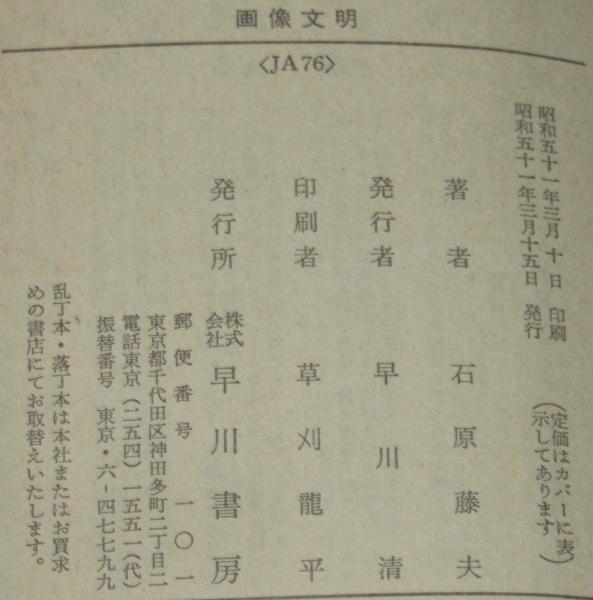 画像文明
〈JA76〉
昭和五十一年三月 十 日 印刷
昭和五十一年三月十五日 発行
(定価はカバーに表
示してあります)
著者 石原藤夫
発行者 早川清
印刷者 草刈龍平
発行所 株式会社 早川書房
郵便番号 一〇一
東京都千代田区神田多町二丁目二
電話東京(二五四)一五五一(代)
振替番号 東京・六-四七七九九
乱丁本・落丁本は本社またはお買求
めの書店にてお取替えいたします。